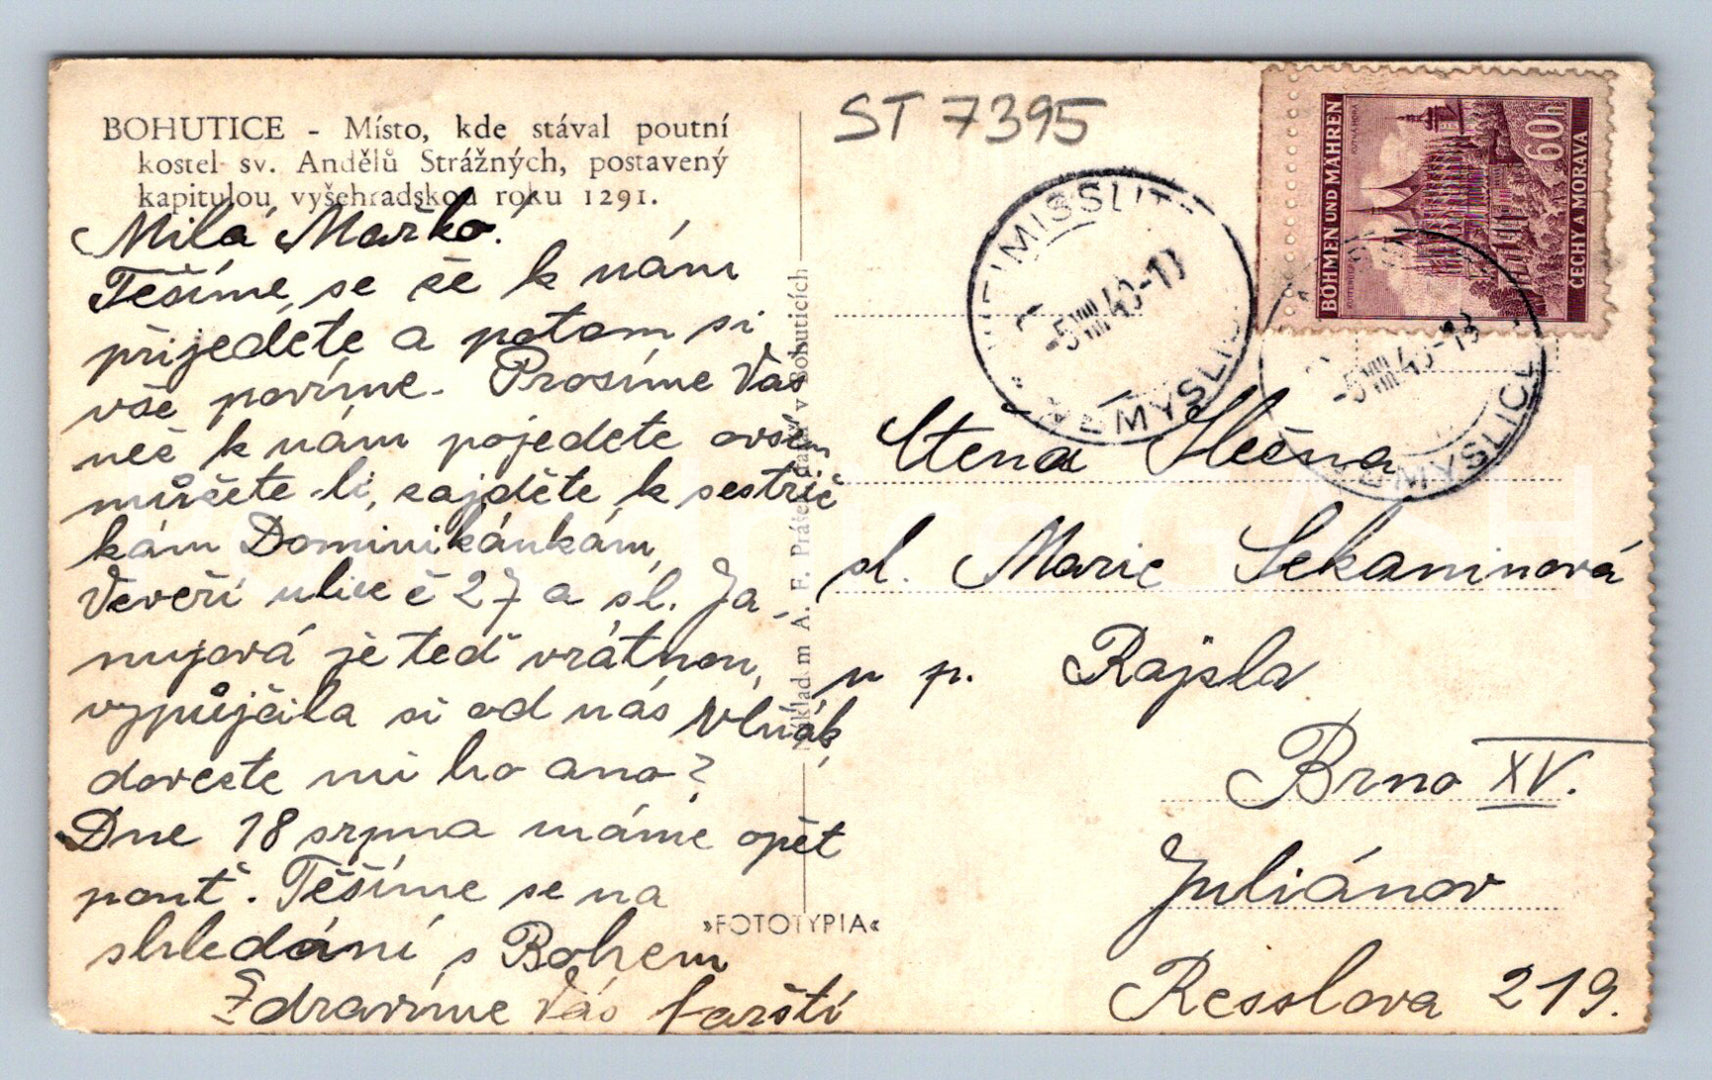 BOHUTICE - Místo, kde stával poutní
kostel sv. Andělů Strážných, postavený
kapitulou vyšehradskou roku 1291.
Milá Mařko!
Těšíme se že k nám
přijedete a potom si
vše povíme. Prosíme Vás
než k nám pojedete ovšem
můžete-li, zajděte k sestřič
kám Dominikánkám,
Veveří ulice č 27 a sl. Ja-
nujová je teď vrátnou,
vypůjčila si od nás
dovezte mi ho ano?
Dne 18 srpna máme opět
pouť. Těšíme se na
shledání s Bohem
Zdravíme Vás farští
Nákladem A. F. Prášek, v Bohuticích
»FOTOTYPIA«
ST 7395
BÖHMEN UND MÄHREN
60h
ČECHY A MORAVA
-5.VIII.40-
NĚMYŠLICE
-5.VIII.40-13
Ctěná Slečna
sl. Marie Sekaninová
u p. Rajsla
Brno XV.
Juliánov
Resslova 219.